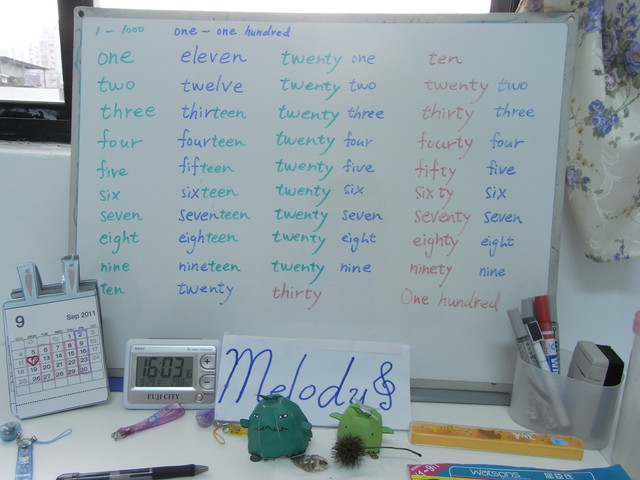 1 - 1000 one - one hundred
one eleven twenty one ten
two twelve twenty two twenty two
three thirteen twenty three thirty three
four fourteen twenty four fourty four
five fifteen twenty five fifty five
six sixteen twenty six sixty six
seven seventeen twenty seven seventy seven
eight eighteen twenty eight eighty eight
nine nineteen twenty nine ninety nine
ten twenty thirty One hundred
9 Sep 2011
16:03
FUJI CITY
Melody